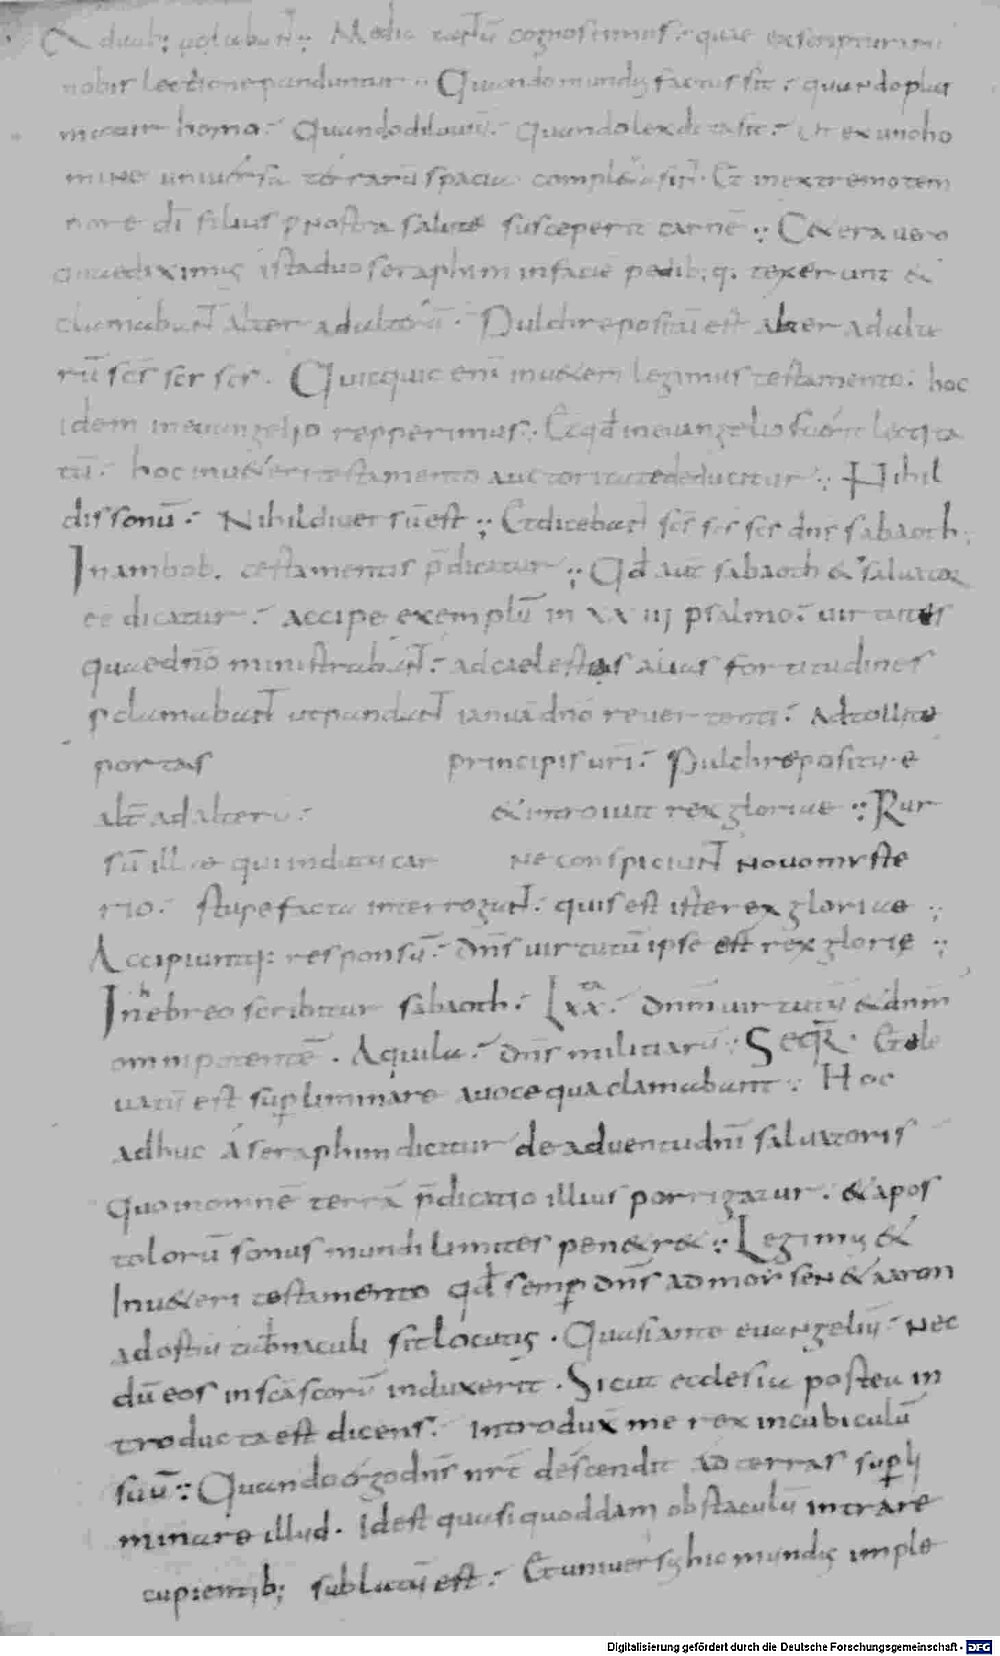 & duab; uolabant; Media tantū cognoscimus. quae exscripturarū
nobis lectione panduntur. Quando mundus factus sit. quando plas
matur homo. Quando diluuiū. Quando lex data sit. Ut ex uno ho
mine uniuersa terrarū spacia completa sint. Et in extremo tem
pore dī filius p nostra salute susceperit carnē; Cetera uero
quae diximus ista duo seraphim in faciē pedib; q. texerunt &
clamabant alter ad alterū. Pulchre positū est alter ad alte
rū scs scs scs. Quicquic enī in ueteri legimus testamento. hoc
idem in euangelio repperimus. Et qd in euangelio fuerit lectita
tū. hoc in ueteri testamento auctoritate deducitur; Nihil
dissonū. Nihil diuersū est; Et dicebant scs scs scs dns sabaoth;
In ambob. testamentis p̄dicatur; Qd aut sabaoth & saluator
ee dicatur. Accipe exemplū in XX iij psalmo. uirtutes
quae dnō ministrabant. ad caelestes alias fortitudines
pclamabant ut pandant ianuā dnō reuertenti. Adtollite
portas principis urī. Pulchre positū. e
alt ad alterū. & introiuit rex gloriae; Rur
sū illae qui indutū car ne conspiciunt nouo myste
rio. stupefactae interrogant. quis est iste rex gloriae;
Accipiuntq; responsū. dns uirtutū ipse est rex glorie;
In hebreo scribitur sabaoth. Lxx. ta dnm uirtutū & dnm
omnipotentē. Aquila. dns militiarū; Seqr. Et ele
uatū est supliminare a uoce qua clamabant; Hoc
adhuc a seraphim dicitur de aduentu dnī saluatoris
quo in omnē terrā p̄dicatio illius porrigatur. & apos
tolorū sonus mundi limites penetret; Legimus &
In ueteri testamento qd semp dns ad mosen & aaron
ad ostiū tabnaculi sit locutus. Quasi ante euangeliū. nec
dū eos in scā scorū induxerit. Sicut ecclesia postea in
troducta est dicens. Introdux me rex in cubiculū
suū; Quando ergo dns nrē descendit ad terras supli
minare illud. Id est quasi quoddam obstaculū intrare
cupientib; sublatū est. Et uniuersus hic mundus imple
Digitalisierung gefördert durch die Deutsche Forschungsgemeinschaft - DFG